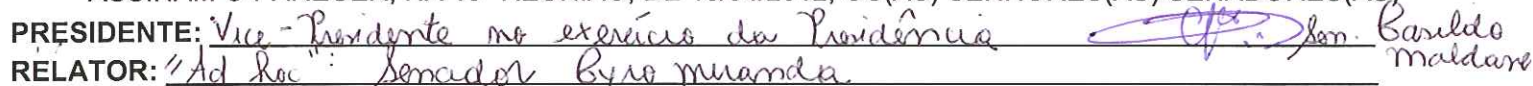 PRESIDENTE: Vice-Presidente no exercício da Presidência Sen. Casildo Maldaner
RELATOR: "Ad Hoc": Senador Cyro Miranda